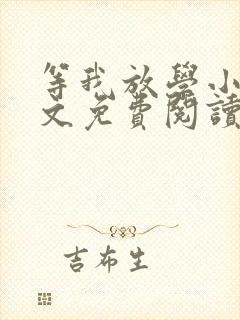 等我放學小
文免費閱讀
吉布生